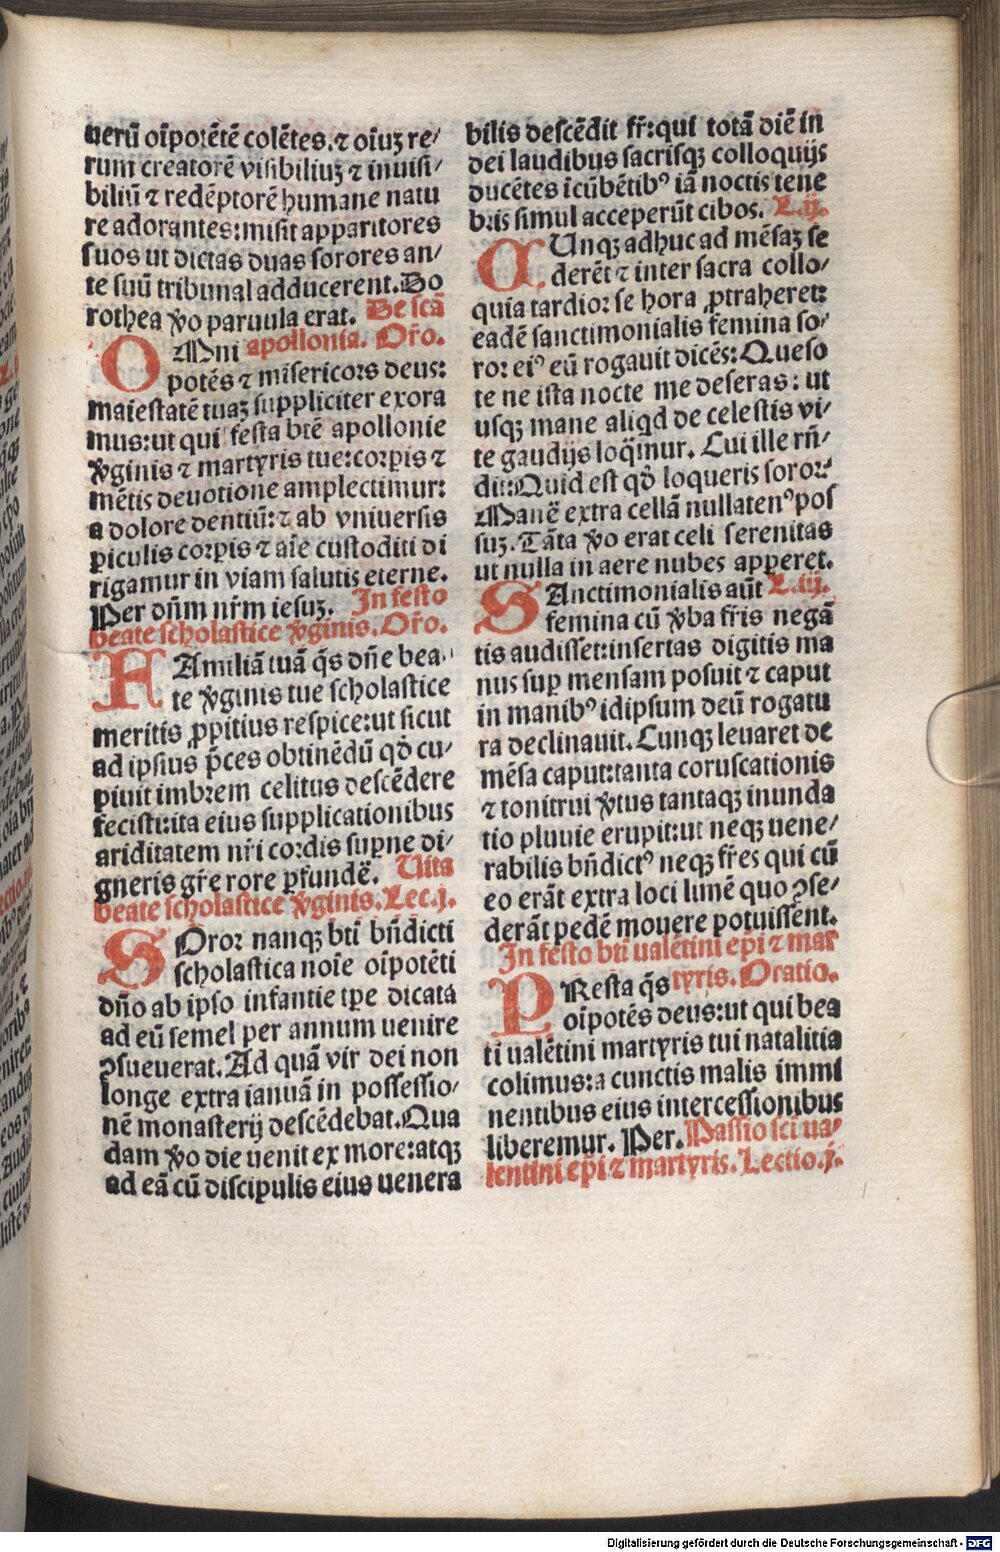 uerū oīpotētē colētes. ⁊ oīuꝫ re/
rum creatorē visibiliuꝫ ⁊ inuisi/
biliū ⁊ redēptorē humane natu
re adorantes: misit apparitores
suos ut dictas duas sorores an/
te suū tribunal adducerent. Do
rothea ꝟo paruula erat. De scā
OMni apollonia. Or̄o.
potēs ⁊ misericors deus:
maiestatē tuaꝫ suppliciter exora
mus: ut qui festa btē apollonie
ꝟginis ⁊ martyris tue: corpis ⁊
mētis deuotione amplectimur:
a dolore dentiū: ⁊ ab vniuersis
ꝑiculis corꝑis ⁊ aīe custoditi di
rigamur in viam salutis eterne.
Per dn̄m nr̄m iesuꝫ. In festo
beate scholastice ꝟginis. Or̄o.
FAmiliā tuā q̄s dn̄e bea/
te ꝟginis tue scholastice
meritis ꝓpitius respice: ut sicut
ad ipsius p̄ces obtinēdū qd̄ cu/
piuit imbrem celitus descēdere
fecisti: ita eius supplicationibus
ariditatem nr̄i cordis supne di/
gneris gr̄e rore ꝑfundē. Uita
beate scholastice ꝟginis. Lec. j.
SOror nanqꝫ bti bn̄dicti
scholastica noīe oīpotēti
dn̄o ab ipso infantie tpe dicata
ad eū semel per annum uenire
ꝯsueuerat. Ad quā vir dei non
longe extra ianuā in possessio/
nē monasterij descēdebat. Qua
dam ꝟo die uenit ex more: atqꝫ
ad eā cū discipulis eius uenera
bilis descēdit fr̄: qui totā diē in
dei laudibus sacrisqꝫ colloquijs
ducētes īcūbētibꝰ iā noctis tene
bris simul acceperūt cibos. L. ij.
CUnqꝫ adhuc ad mēsaꝫ se
derēt ⁊ inter sacra collo/
quia tardior se hora ꝓtraheret:
eadē sanctimonialis femina so/
ror eiꝰ eū rogauit dicēs: Queso
te ne ista nocte me deseras: ut
usqꝫ mane aliqd de celestis vi/
te gaudijs loq̄mur. Cui ille rn̄/
dit: Quid est qd̄ loqueris soror?
Manē extra cellā nullatenꝰ pos
suꝫ. Tāta ꝟo erat celi serenitas
ut nulla in aere nubes apꝑeret.
SAnctimonialis aūt L. iij.
femina cū ꝟba fr̄is negā
tis audisset: insertas digitis ma
nus suꝑ mensam posuit ⁊ caput
in manibꝰ idipsum deū rogatu
ra declinauit. Cunqꝫ leuaret de
mēsa caput: tanta coruscationis
⁊ tonitrui ꝟtus tantaqꝫ inunda
tio pluuie erupit: ut neqꝫ uene/
rabilis bn̄dictꝰ neqꝫ fr̄es qui cū
eo erāt extra loci limē quo ꝯse/
derāt pedē mouere potuissent.
In festo bti ualētini ep̄i ⁊ mar
PResta q̄s tyris. Oratio.
oīpotēs deus: ut qui bea
ti ualētini martyris tui natalitia
colimus: a cunctis malis immi
nentibus eius intercessionibus
liberemur. Per. Passio sci ua/
lentini ep̄i ⁊ martyris. Lectio. j.
Digitalisierung gefördert durch die Deutsche Forschungsgemeinschaft - DFG